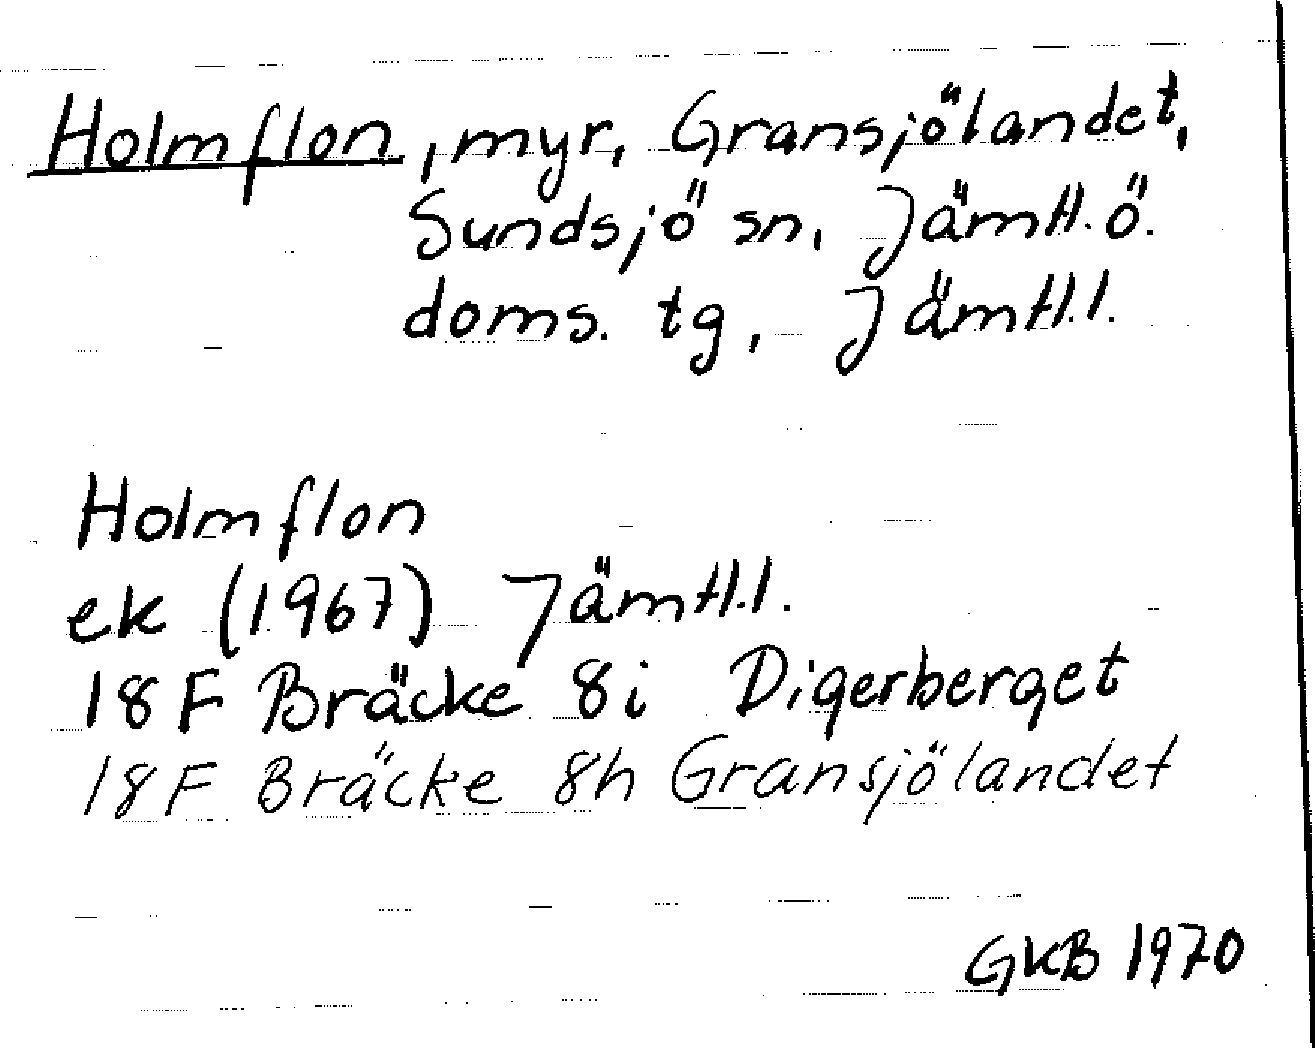 Holmflon, myr, Gransjölandet,
Sundsjö sn, Jämtl. ö.
doms. tg, Jämtl.l.
Holmflon
ek (1967) Jämtl.l.
18F Bräcke 8i Digerberget
18F Bräcke 8h Gransjölandet
GKB 1970